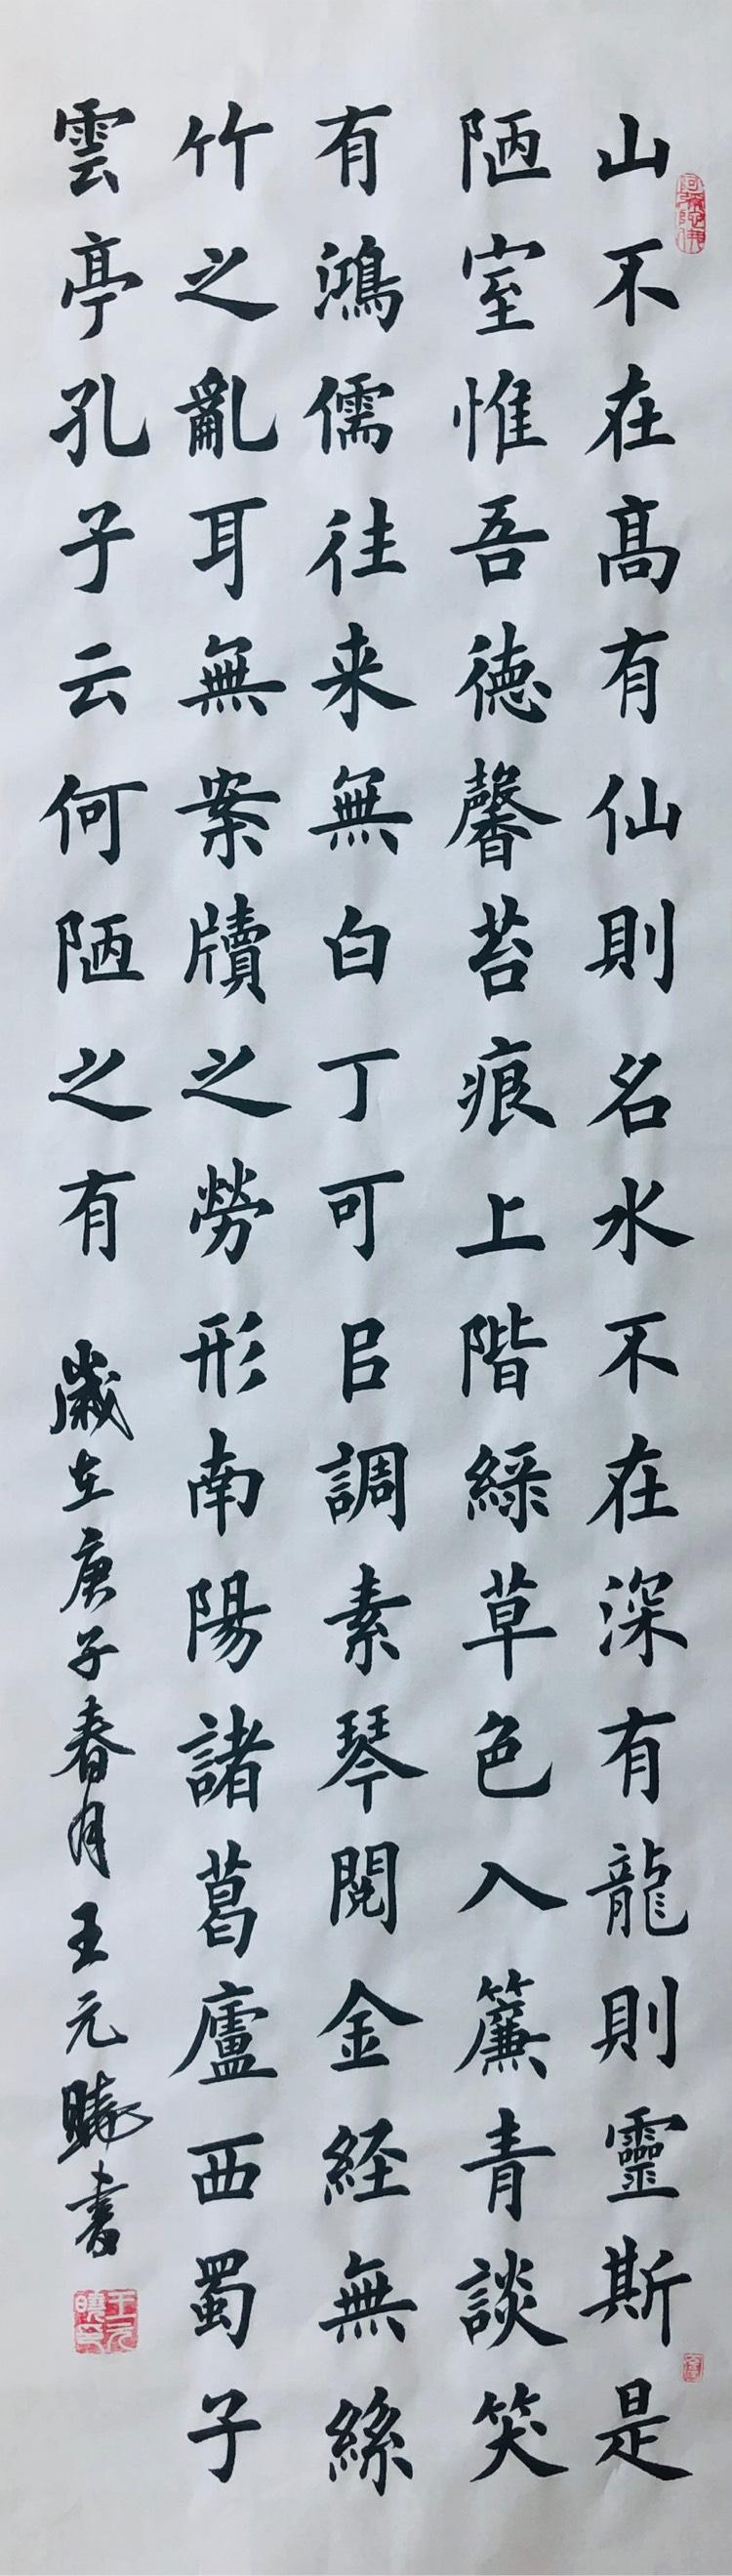 山不在髙有仙則名水不在深有龍則靈斯是
陋室惟吾徳馨苔痕上階綠草色入簾青談笑
有鴻儒往来無白丁可㠯調素琴閱金経無絲
竹之亂耳無案牘之勞形南陽諸葛廬西蜀子
雲亭孔子云何陋之有 歲在庚子春月王元曉書
阿彌陀佛
王元曉印